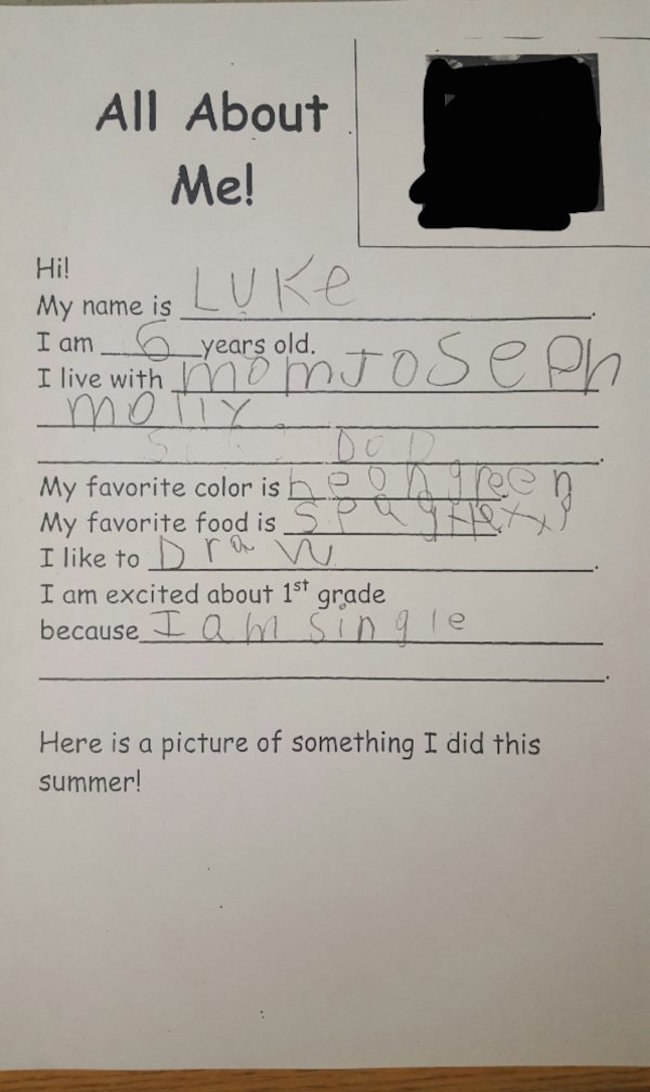 All About
Me!
Hi!
My name is LUKe.
I am 6 years old.
I live with mom JOSePh
mOllY
DOD.
My favorite color is neongreen
My favorite food is .
I like to DraW.
I am excited about 1st grade
because I am single
.
Here is a picture of something I did this
summer!